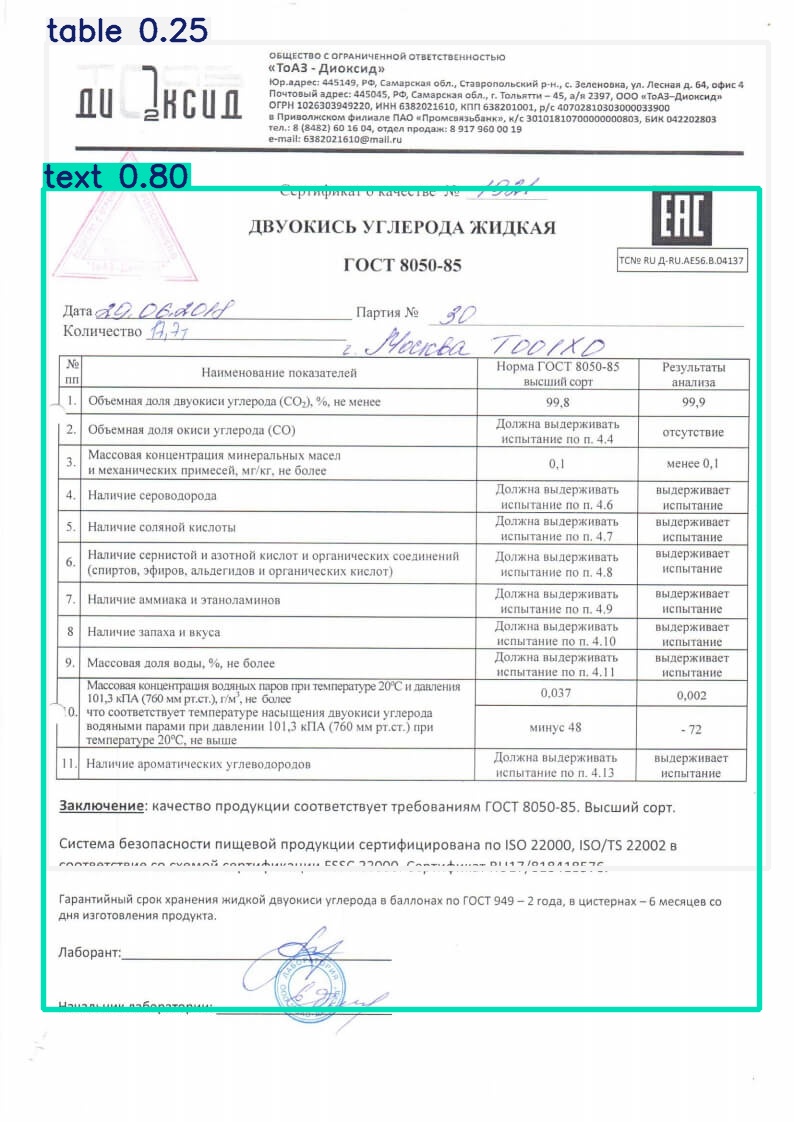 table 0.25
ДИ2КСИД
ОБЩЕСТВО С ОГРАНИЧЕННОЙ ОТВЕТСТВЕННОСТЬЮ
«ТоАЗ - Диоксид»
Юр.адрес: 445149, РФ, Самарская обл., Ставропольский р-н., с. Зеленовка, ул. Лесная д. 64, офис 4
Почтовый адрес: 445045, РФ, Самарская обл., г. Тольятти – 45, а/я 2397, ООО «ТоАЗ–Диоксид»
ОГРН 1026303949220, ИНН 6382021610, КПП 638201001, р/с 40702810303000033900
в Приволжском филиале ПАО «Промсвязьбанк», к/с 30101810700000000803, БИК 042202803
тел.: 8 (8482) 60 16 04, отдел продаж: 8 917 960 00 19
e-mail: 6382021610@mail.ru
text 0.80
Сертификат о качестве № 1921
ДВУОКИСЬ УГЛЕРОДА ЖИДКАЯ
EAC
ГОСТ 8050-85
ТС№ RU Д-RU.АЕ56.В.04137
Дата 29.06.2018 Партия № 30
Количество 17,7т
г. Москва Т001ХО
№ пп Наименование показателей Норма ГОСТ 8050-85 высший сорт Результаты анализа
1. Объемная доля двуокиси углерода (CO₂), %, не менее 99,8 99,9
2. Объемная доля окиси углерода (СО) Должна выдерживать испытание по п. 4.4 отсутствие
3. Массовая концентрация минеральных масел и механических примесей, мг/кг, не более 0,1 менее 0,1
4. Наличие сероводорода Должна выдерживать испытание по п. 4.6 выдерживает испытание
5. Наличие соляной кислоты Должна выдерживать испытание по п. 4.7 выдерживает испытание
6. Наличие сернистой и азотной кислот и органических соединений (спиртов, эфиров, альдегидов и органических кислот) Должна выдерживать испытание по п. 4.8 выдерживает испытание
7. Наличие аммиака и этаноламинов Должна выдерживать испытание по п. 4.9 выдерживает испытание
8 Наличие запаха и вкуса Должна выдерживать испытание по п. 4.10 выдерживает испытание
9. Массовая доля воды, %, не более Должна выдерживать испытание по п. 4.11 выдерживает испытание
10. Массовая концентрация водяных паров при температуре 20ºС и давления 101,3 кПА (760 мм рт.ст.), г/м³, не более 0,037 0,002
что соответствует температуре насыщения двуокиси углерода водяными парами при давлении 101,3 кПА (760 мм рт.ст.) при температуре 20ºС, не выше минус 48 - 72
11. Наличие ароматических углеводородов Должна выдерживать испытание по п. 4.13 выдерживает испытание
Заключение: качество продукции соответствует требованиям ГОСТ 8050-85. Высший сорт.
Система безопасности пищевой продукции сертифицирована по ISO 22000, ISO/TS 22002 в
соответствие со схемой сертификации FSSC 22000. Сертификат RU17/818418576.
Гарантийный срок хранения жидкой двуокиси углерода в баллонах по ГОСТ 949 – 2 года, в цистернах – 6 месяцев со
дня изготовления продукта.
Лаборант:
Начальник лаборатории: